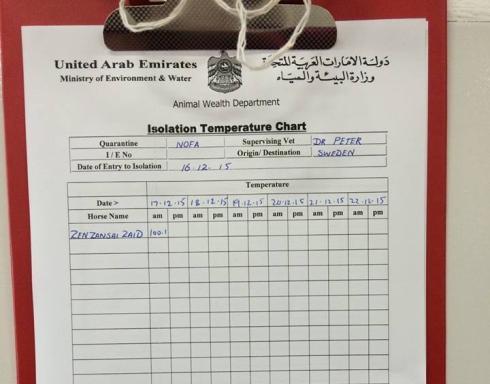 United Arab Emirates
Ministry of Environment & Water
دولة الامارات العربية المتحدة
وزارة البيئة والمياه
Animal Wealth Department
Isolation Temperature Chart
Quarantine NOFA Supervising Vet DR PETER
I / E No Origin/ Destination SWEDEN
Date of Entry to Isolation 16.12.15
Temperature
Date > 17.12.15 18.12.15 19.12.15 20.12.15 21.12.15 22.12.15
Horse Name am pm am pm am pm am pm am pm am pm
ZENZANSAI ZAID 100.1